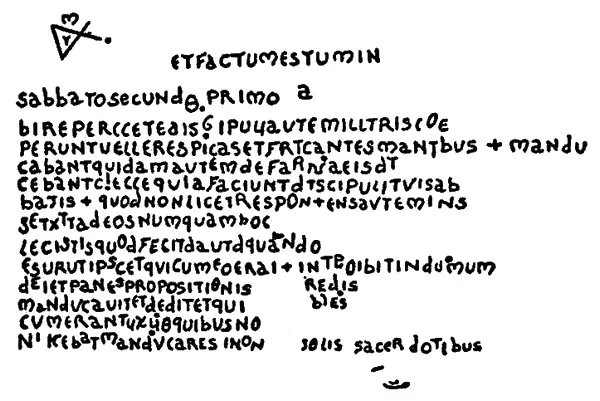 ETFACTUMESTUMIN
SABBATOSECUNDO.PRIMO A
BIREPERCCETEAISGIPULIAUTEMILLTRISCOE
PERUNTUELLERESPICASETFRTCANTESMANTBUS + MANDU
CABANTQUIDAMAUTEMDEFARNAEISDT
CEBANTCIECCEQUIAFACIUNTDTSCIPULITUISAB
BATIS + QUODNONLICETRESPON+ENSAUTEMINS
SETXTTADEOSNUMQUAMHOC
LECISTISQUODFECITDAUTDQUANDO
ESURUTIPSCETQUICUMEOERAI + INTROIBITINDUMUM
DEIETPANESPROPOSITIONIS REDIS
MANDUCAUITETDEDITETQUI BLES
CUMERANTUXUOQUIBUSNO
NLICEBATMANDUCARESINON SOLIS SACERDOTIBUS